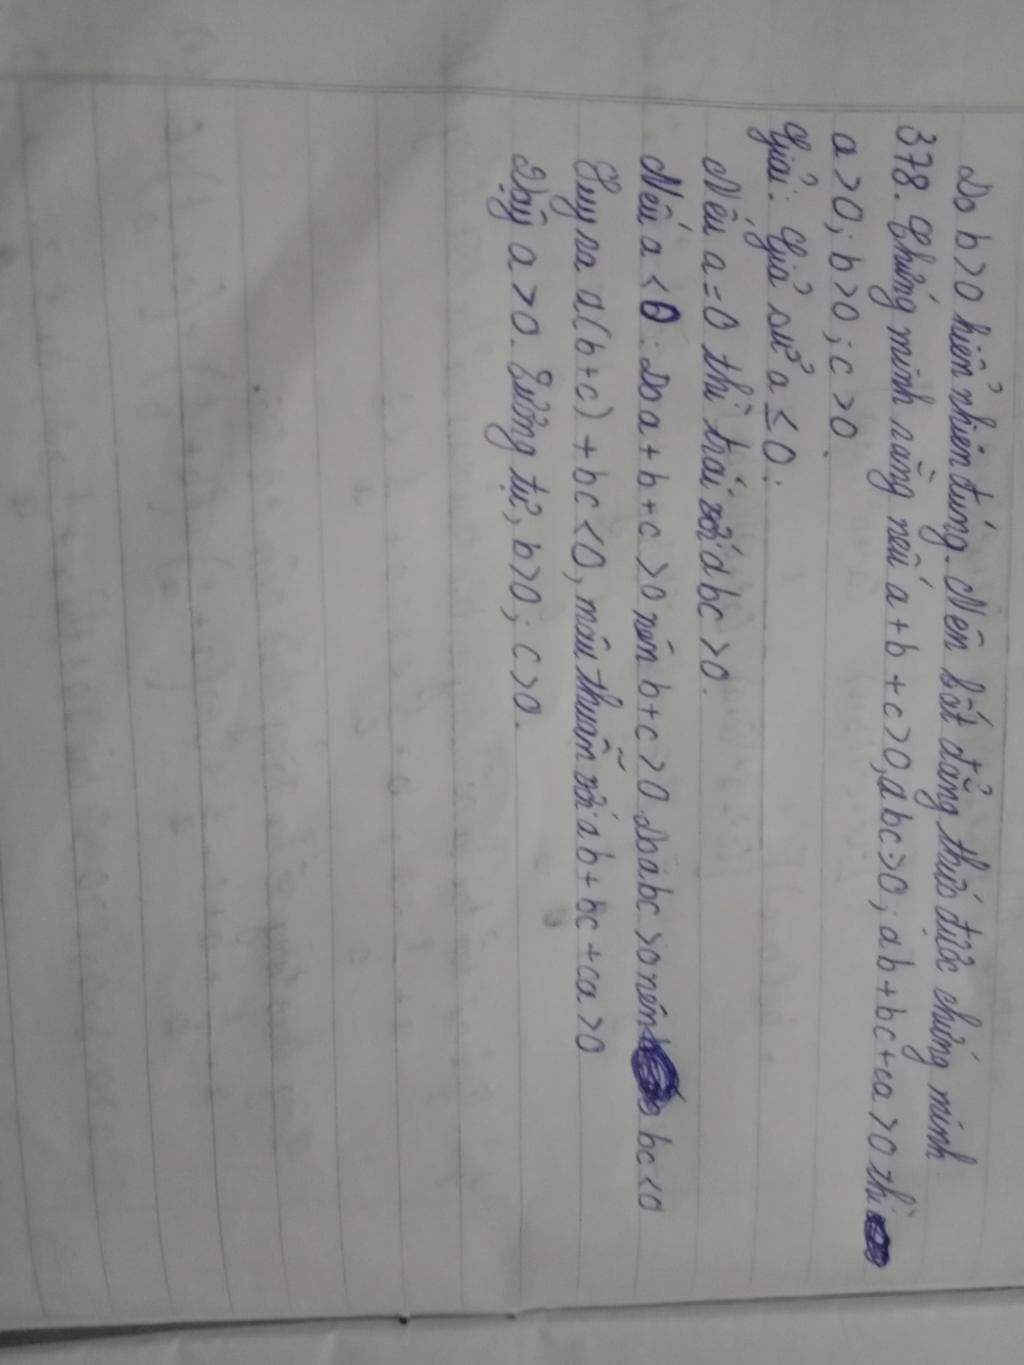 Do b > 0 hiển nhiên đúng. Nên bất đẳng thức được chứng minh.
378. Chứng minh rằng nếu a + b + c > 0, abc > 0; ab + bc + ca > 0 thì
a > 0; b > 0; c > 0.
Giải: Giả sử a ≤ 0:
Nếu a = 0 thì trái với abc > 0.
Nếu a < 0: Do a + b + c > 0 nên b + c > 0. Do abc > 0 nên bc < 0
Suy ra a(b + c) + bc < 0, mâu thuẫn với ab + bc + ca > 0
Vậy a > 0. Tương tự, b > 0; c > 0.